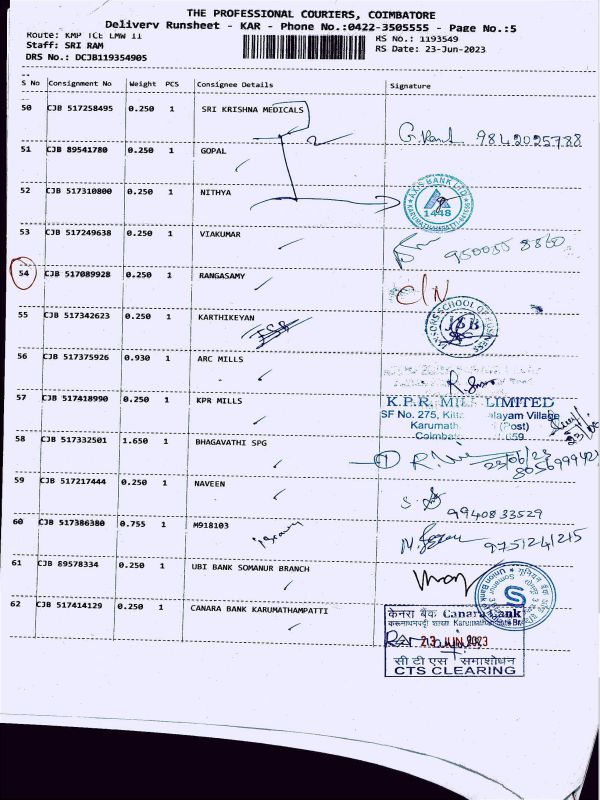 THE PROFESSIONAL COURIERS, COIMBATORE
Delivery Runsheet - KAR - Phone No.:0422-3505555 - Page No.:5
Route: KMP TCE LMW II
RS No.: 1193549
Staff: SRI RAM
RS Date: 23-Jun-2023
DRS No.: DCJB119354905
S No Consignment No Weight PCS Consignee Details Signature
50 CJB 517258495 0.250 1 SRI KRISHNA MEDICALS
9842025788
51 CJB 89541780 0.250 1 GOPAL
52 CJB 517310800 0.250 1 NITHYA
AXIS BANK LTD
1448
53 CJB 517249638 0.250 1 VIAKUMAR
54 CJB 517089928 0.250 1 RANGASAMY
C/N
55 CJB 517342623 0.250 1 KARTHIKEYAN
SCHOOL OF BUSINESS
JSB
56 CJB 517375926 0.930 1 ARC MILLS
57 CJB 517418990 0.250 1 KPR MILLS
K.P.R. MILL LIMITED
SF No. 275, Village
(Post)
659
58 CJB 517332501 1.650 1 BHAGAVATHI SPG
59 CJB 517217444 0.250 1 NAVEEN
9940833529
60 CJB 517386380 0.755 1 M918103
9751241215
61 CJB 89578334 0.250 1 UBI BANK SOMANUR BRANCH
62 CJB 517414129 0.250 1 CANARA BANK KARUMATHAMPATTI
केनरा बैंक Canara Bank
23 JUN 2023
सी टी एस समाशोधन
CTS CLEARING